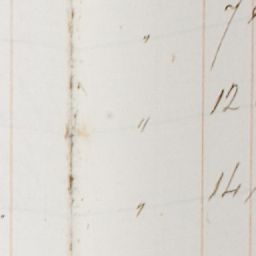 " 7
" 12
" 14